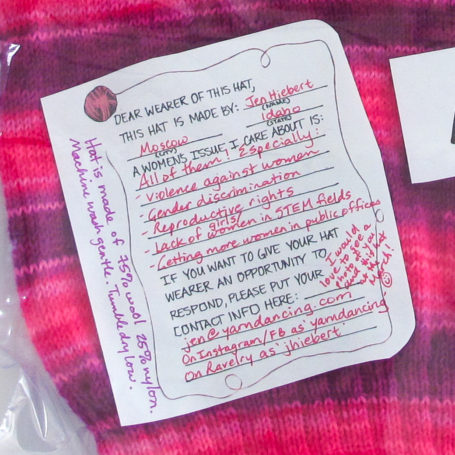 DEAR WEARER OF THIS HAT,
THIS HAT IS MADE BY: Jen Hiebert
(NAME)
Moscow Idaho
(CITY) (STATE)
A WOMENS ISSUE I CARE ABOUT IS:
All of them! Especially:
- Violence against women
- Gender discrimination
- Reproductive rights
- Lack of girls/women in STEM fields
- Getting more women in public offices
IF YOU WANT TO GIVE YOUR HAT
WEARER AN OPPORTUNITY TO
RESPOND, PLEASE PUT YOUR
CONTACT INFO HERE:
jen@yarndancing.com
On Instagram/FB as 'yarndancing'
On Ravelry as 'jhiebert'
I would
love to see a
photo of you
and this hat
at the
March! ☺
Hat is made of 75% wool 25% nylon.
Machine wash gentle. Tumble dry low.